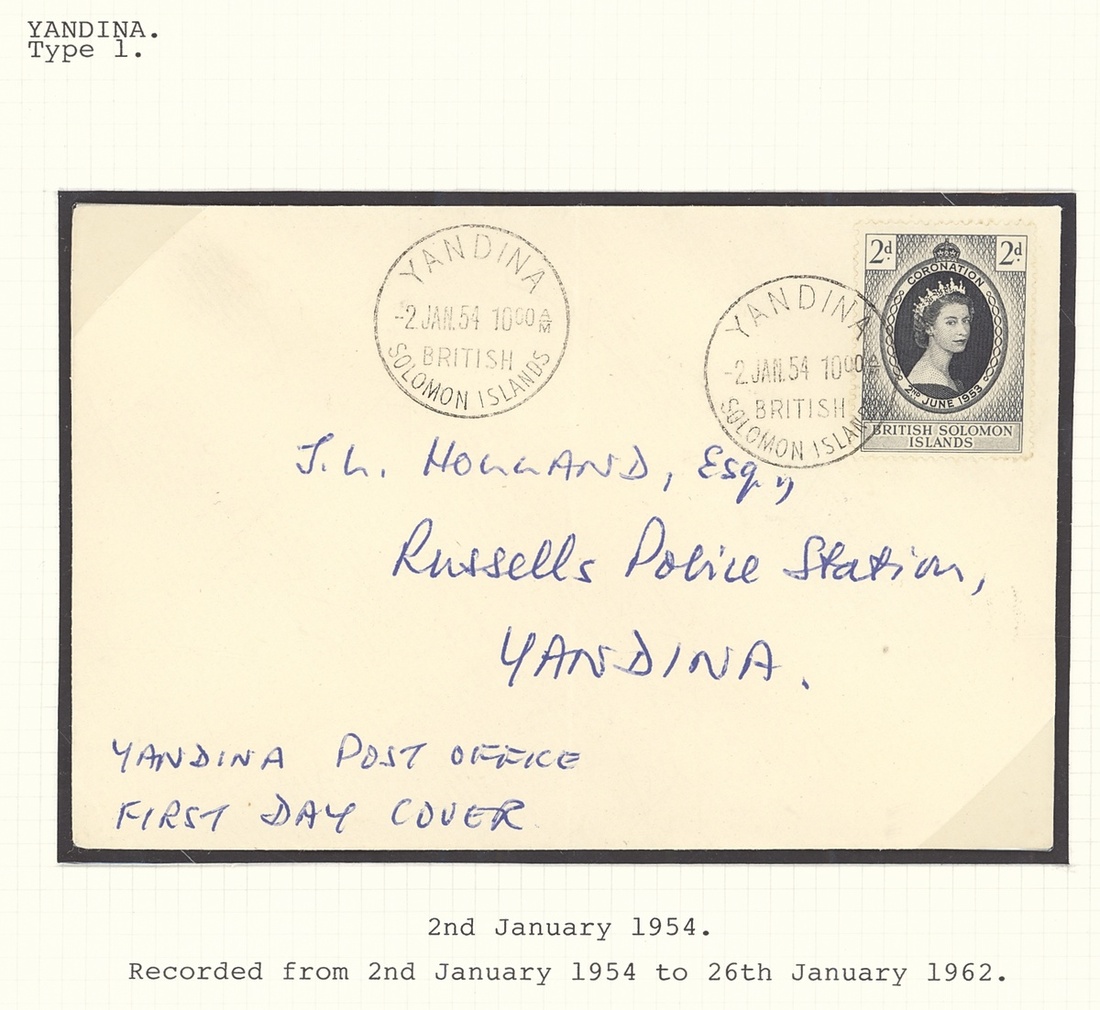 YANDINA.
Type 1.
YANDINA
-2 JAN.54 10 00 AM
BRITISH
SOLOMON ISLANDS
YANDINA
-2 JAN.54 10 00 A
BRITISH
SOLOMON ISLAND
2d. 2d.
CORONATION
2ND JUNE 1953
BRITISH SOLOMON
ISLANDS
J.L. HOLLAND, Esq.,
Russells Police Station,
YANDINA.
YANDINA POST OFFICE
FIRST DAY COVER
2nd January 1954.
Recorded from 2nd January 1954 to 26th January 1962.